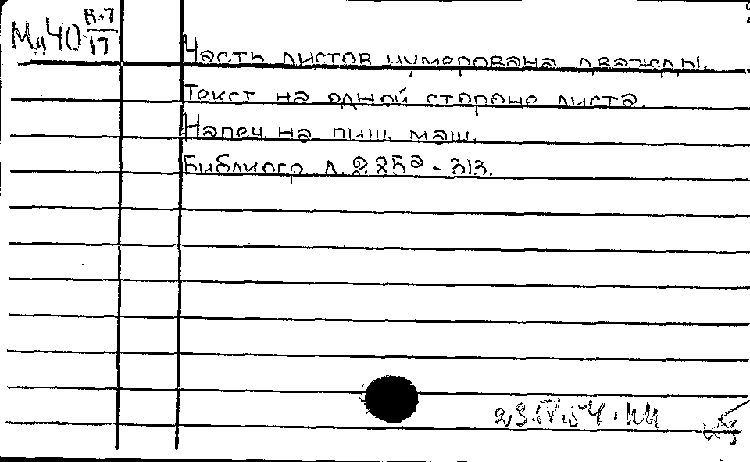 Мд40 К-7/17
Часть листов нумерована дважды.
Текст на одной стороне листа.
Напеч. на пиш. маш.
Библиогр. л. 285а - 313.
23.IV.54.